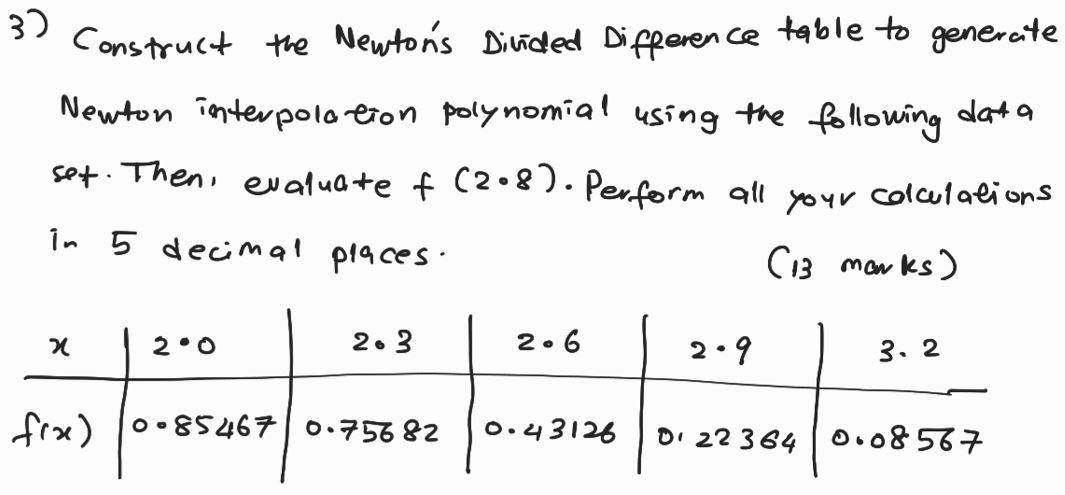 3) Construct the Newton's Divided Difference table to generate
Newton interpolation polynomial using the following data
set. Then, evaluate f (2.8). Perform all your calculations
in 5 decimal places. (13 marks)
x 2.0 2.3 2.6 2.9 3.2
f(x) 0.85467 0.75682 0.43126 0.22364 0.08567